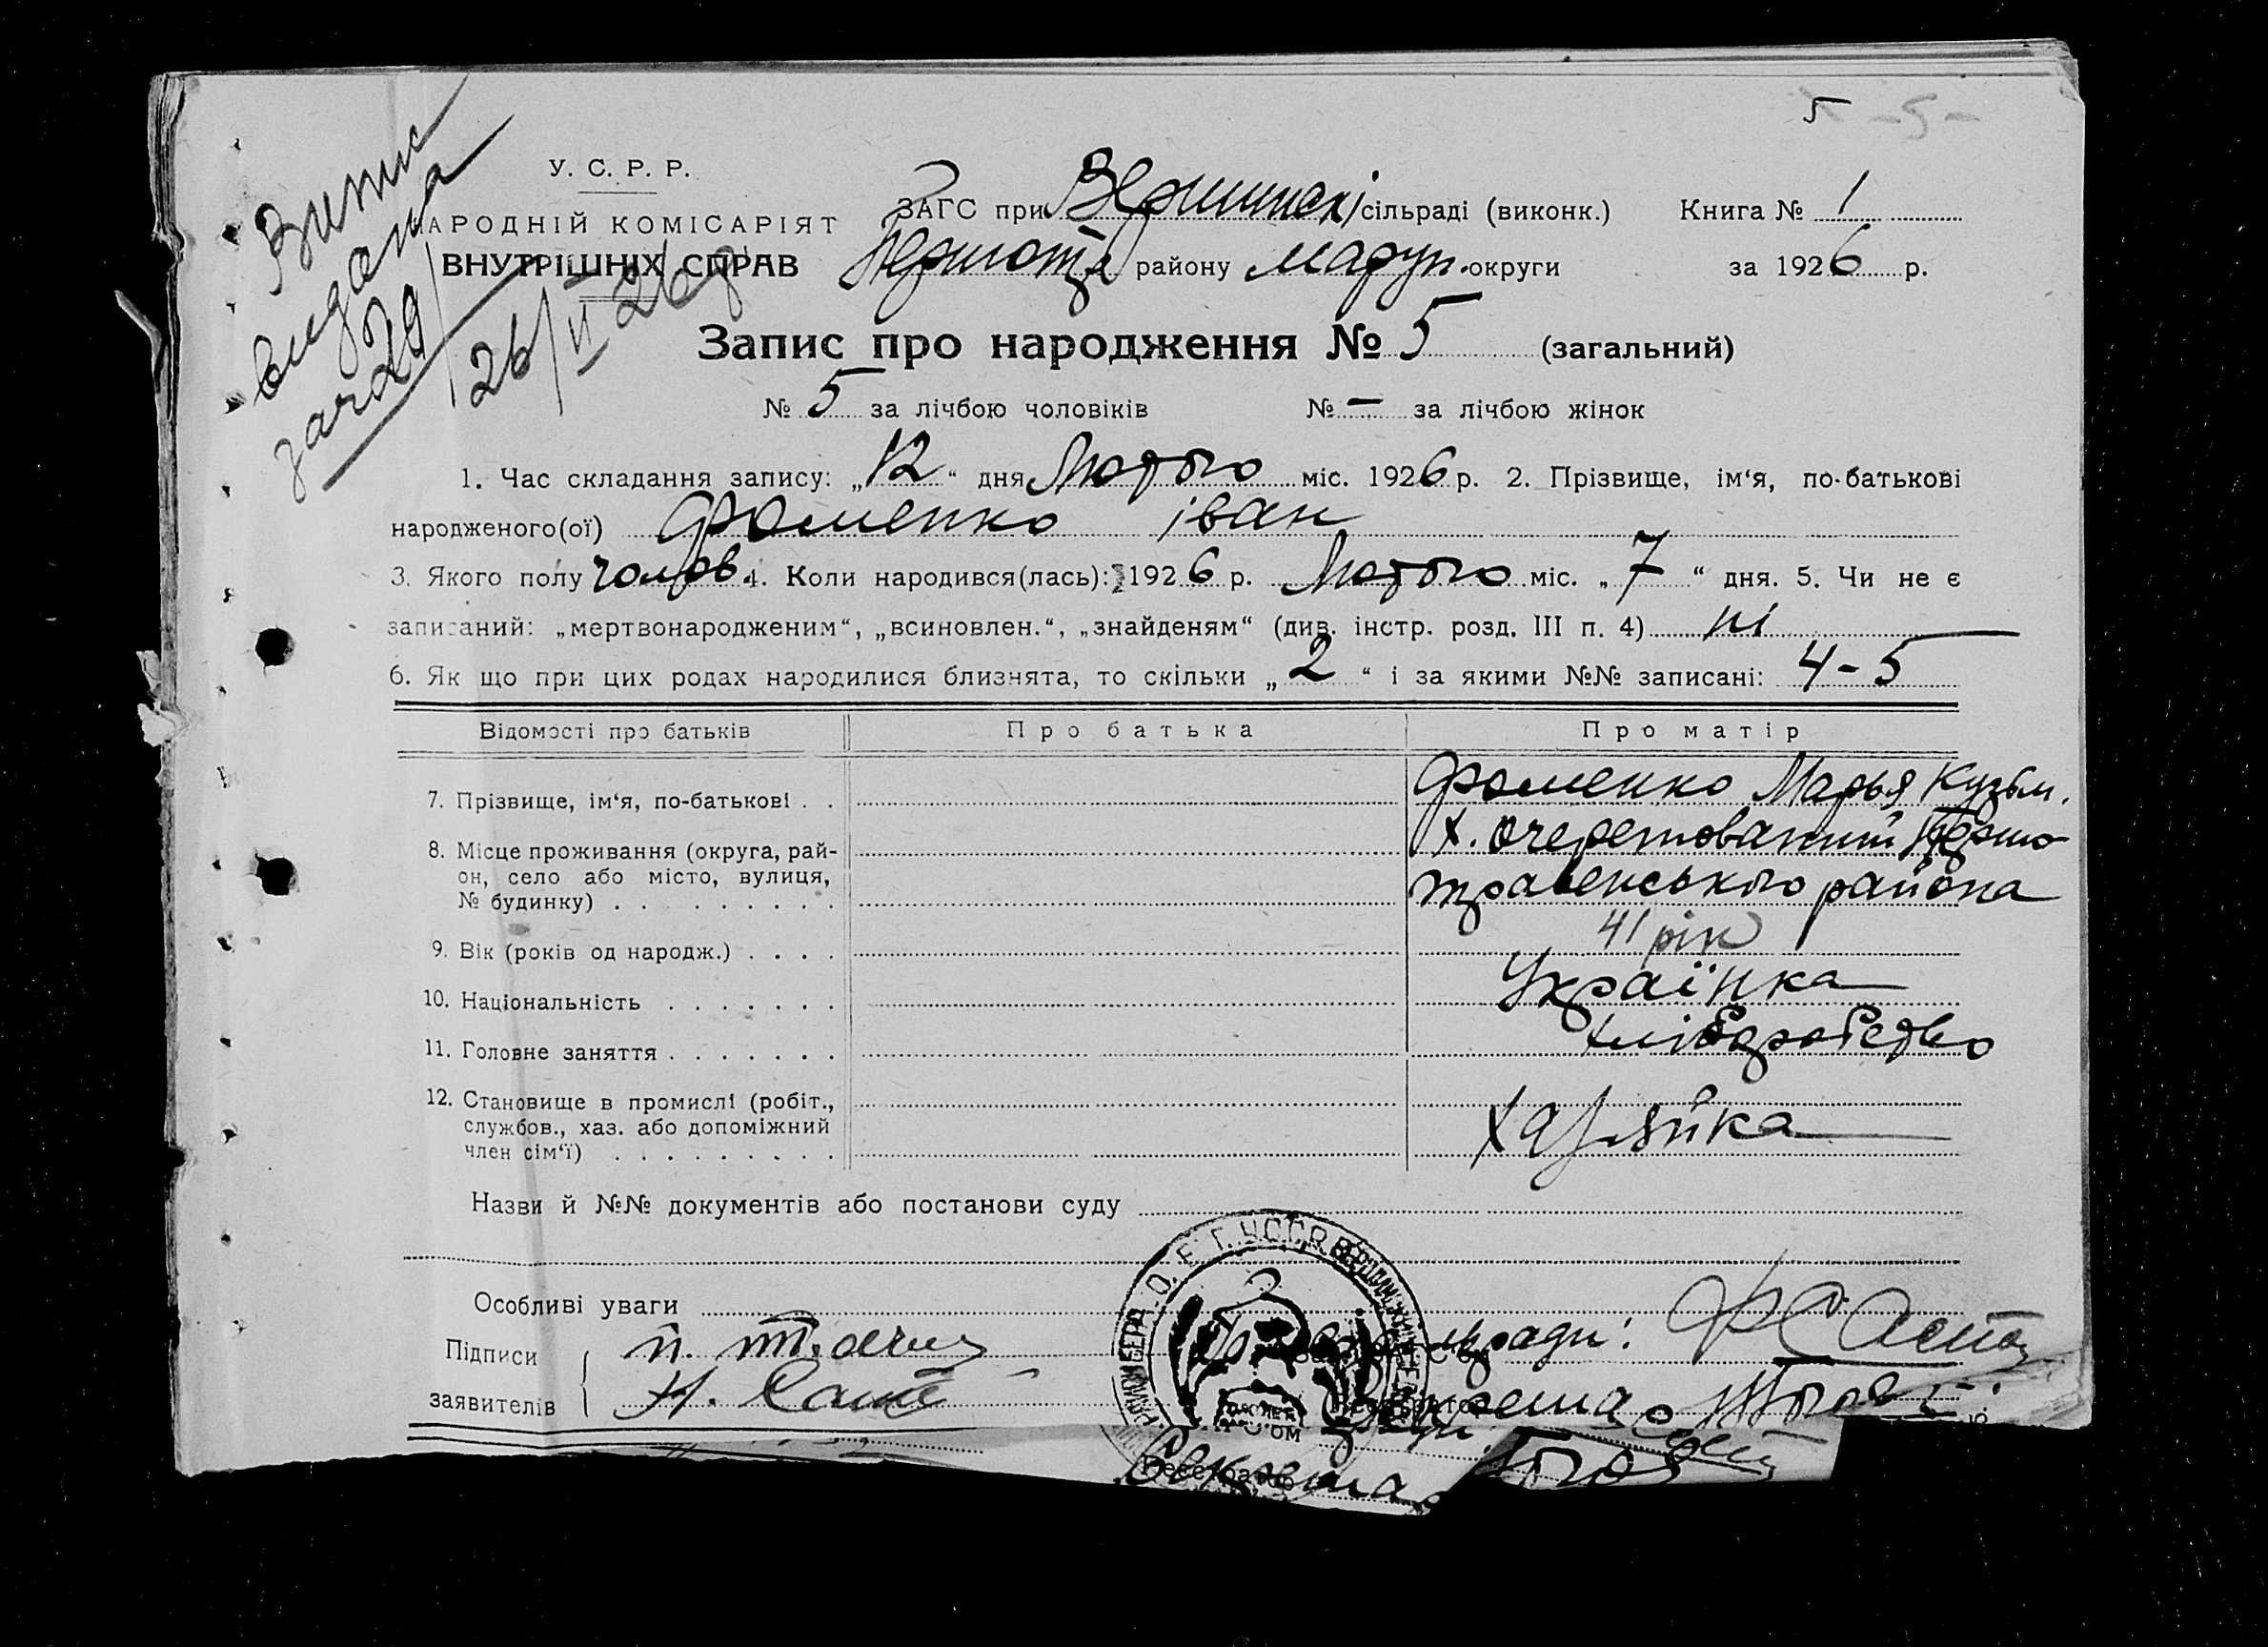 5 -5-
Витис
видана
за №29/
26/II 26 р
У. С. Р. Р.
НАРОДНІЙ КОМІСАРІЯТ
ВНУТРІШНІХ СПРАВ
ЗАГС при Вершинск/сільраді (виконк.) Книга № 1
Першотр району Маруп. округи за 1926 р.
Запис про народження № 5 (загальний)
№ 5 за лічбою чоловіків № — за лічбою жінок
1. Час складання запису: „12“ дня Лютого міс. 1926 р. 2. Прізвище, ім‘я, по-батькові
народженого(ої) Фоменко іван
3. Якого полу чолов. 4. Коли народився(лась): 1926 р. Лютого міс. „7“ дня. 5. Чи не є
записаний: „мертвонародженим“, „всиновлен.“, „знайденям“ (див. інстр. розд. III п. 4) ні
6. Як що при цих родах народилися близнята, то скільки „2“ і за якими №№ записані: 4-5
Відомості про батьків Про батька Про матір
7. Прізвище, ім‘я, по-батькові . . Фоменко Марья Кузьм.
8. Місце проживання (округа, рай- х. Очеретоватий Першо
он, село або місто, вулиця, травенського района
№ будинку) . . . . . . . . .
9. Вік (років од народж.) . . . . 41 рік
10. Національність . . . . . . . Українка
11. Головне заняття . . . . . . . хліборобство
12. Становище в промислі (робіт.,
службов., хаз. або допоміжний хазяйка
член сім‘ї) . . . . . . . . .
Назви й №№ документів або постанови суду
Особливі уваги
Підписи
заявителів